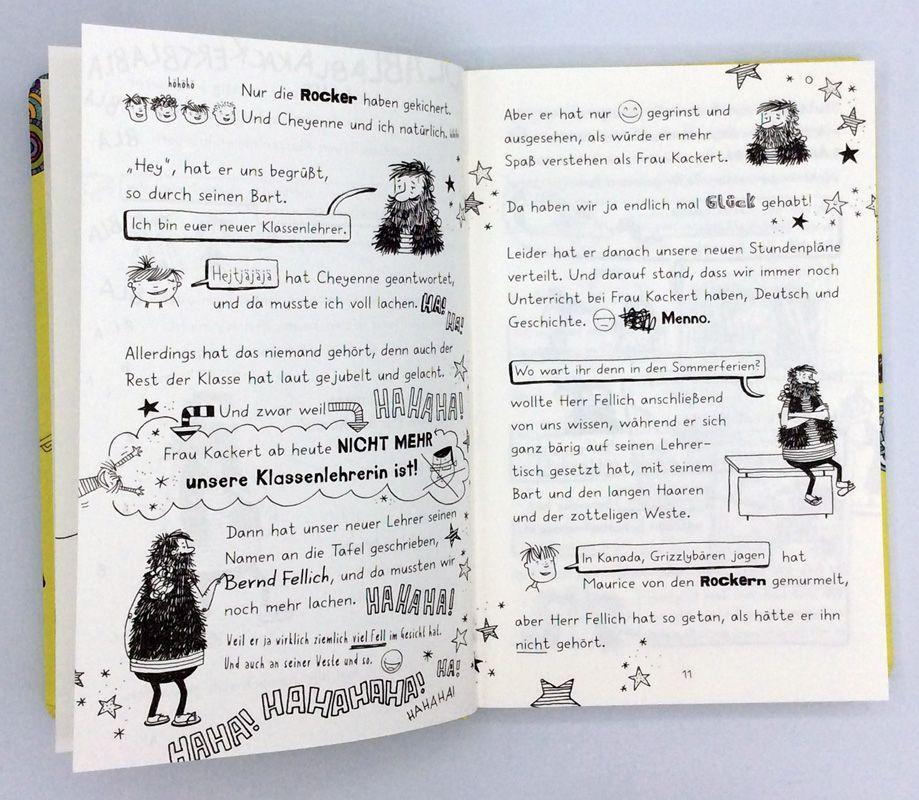 höhöhö
Nur die Rocker haben gekichert.
Und Cheyenne und ich natürlich.
„Hey“, hat er uns begrüßt,
so durch seinen Bart.
Ich bin euer neuer Klassenlehrer.
Hejtjäjäjä hat Cheyenne geantwortet,
und da musste ich voll lachen. HA!
HA!
Allerdings hat das niemand gehört, denn auch der
Rest der Klasse hat laut gejubelt und gelacht.
Und zwar weil HAHAHA!
Frau Kackert ab heute NICHT MEHR
unsere Klassenlehrerin ist!
Dann hat unser neuer Lehrer seinen
Namen an die Tafel geschrieben,
Bernd Fellich, und da mussten wir
noch mehr lachen. HAHAHA!
Weil er ja wirklich ziemlich viel Fell im Gesicht hat.
Und auch an seiner Weste und so.
HAHA! HAHAHAHA! HA!
HAHAHA!
Aber er hat nur gegrinst und
ausgesehen, als würde er mehr
Spaß verstehen als Frau Kackert.
Da haben wir ja endlich mal Glück gehabt!
Leider hat er danach unsere neuen Stundenpläne
verteilt. Und darauf stand, dass wir immer noch
Unterricht bei Frau Kackert haben, Deutsch und
Geschichte. Menno.
Wo wart ihr denn in den Sommerferien?
wollte Herr Fellich anschließend
von uns wissen, während er sich
ganz bärig auf seinen Lehrer-
tisch gesetzt hat, mit seinem
Bart und den langen Haaren
und der zotteligen Weste.
In Kanada, Grizzlybären jagen hat
Maurice von den Rockern gemurmelt,
aber Herr Fellich hat so getan, als hätte er ihn
nicht gehört.
11